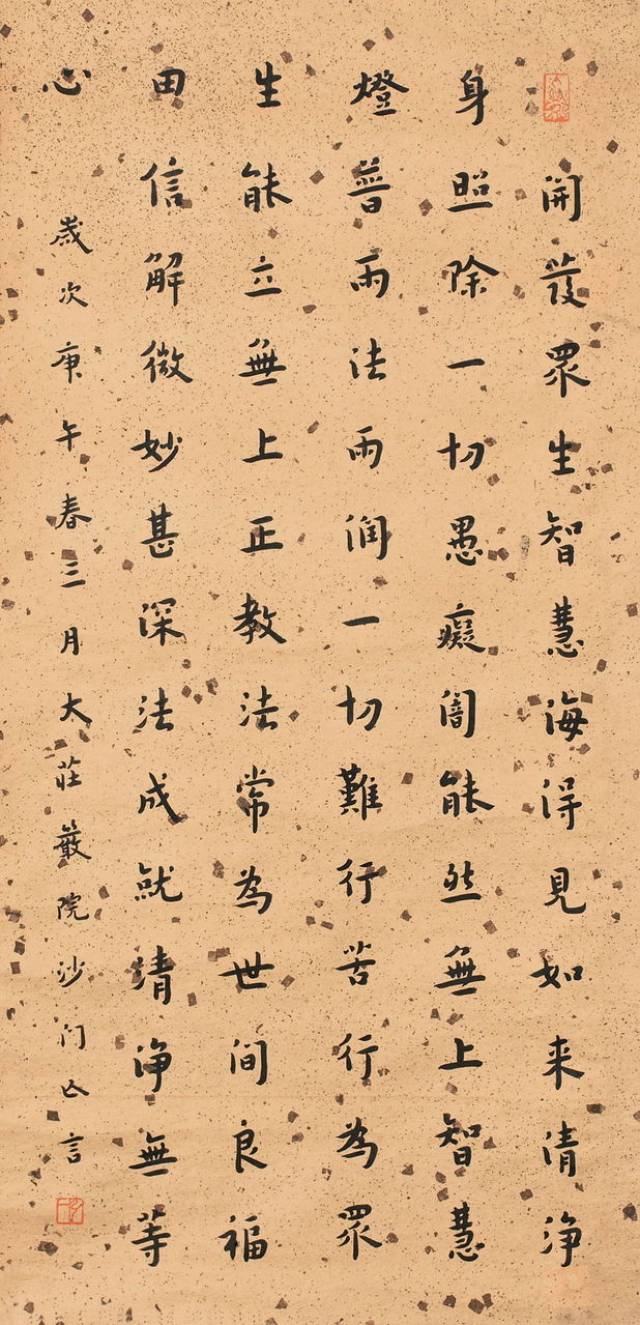 開發眾生智慧海得見如来清淨
身照除一切愚癡闇能然無上智慧
燈普雨法雨润一切難行苦行為眾
生能立無上正教法常為世間良福
田信解微妙甚深法成就清淨無等
心 歲次庚午春三月大莊嚴院沙门亾言